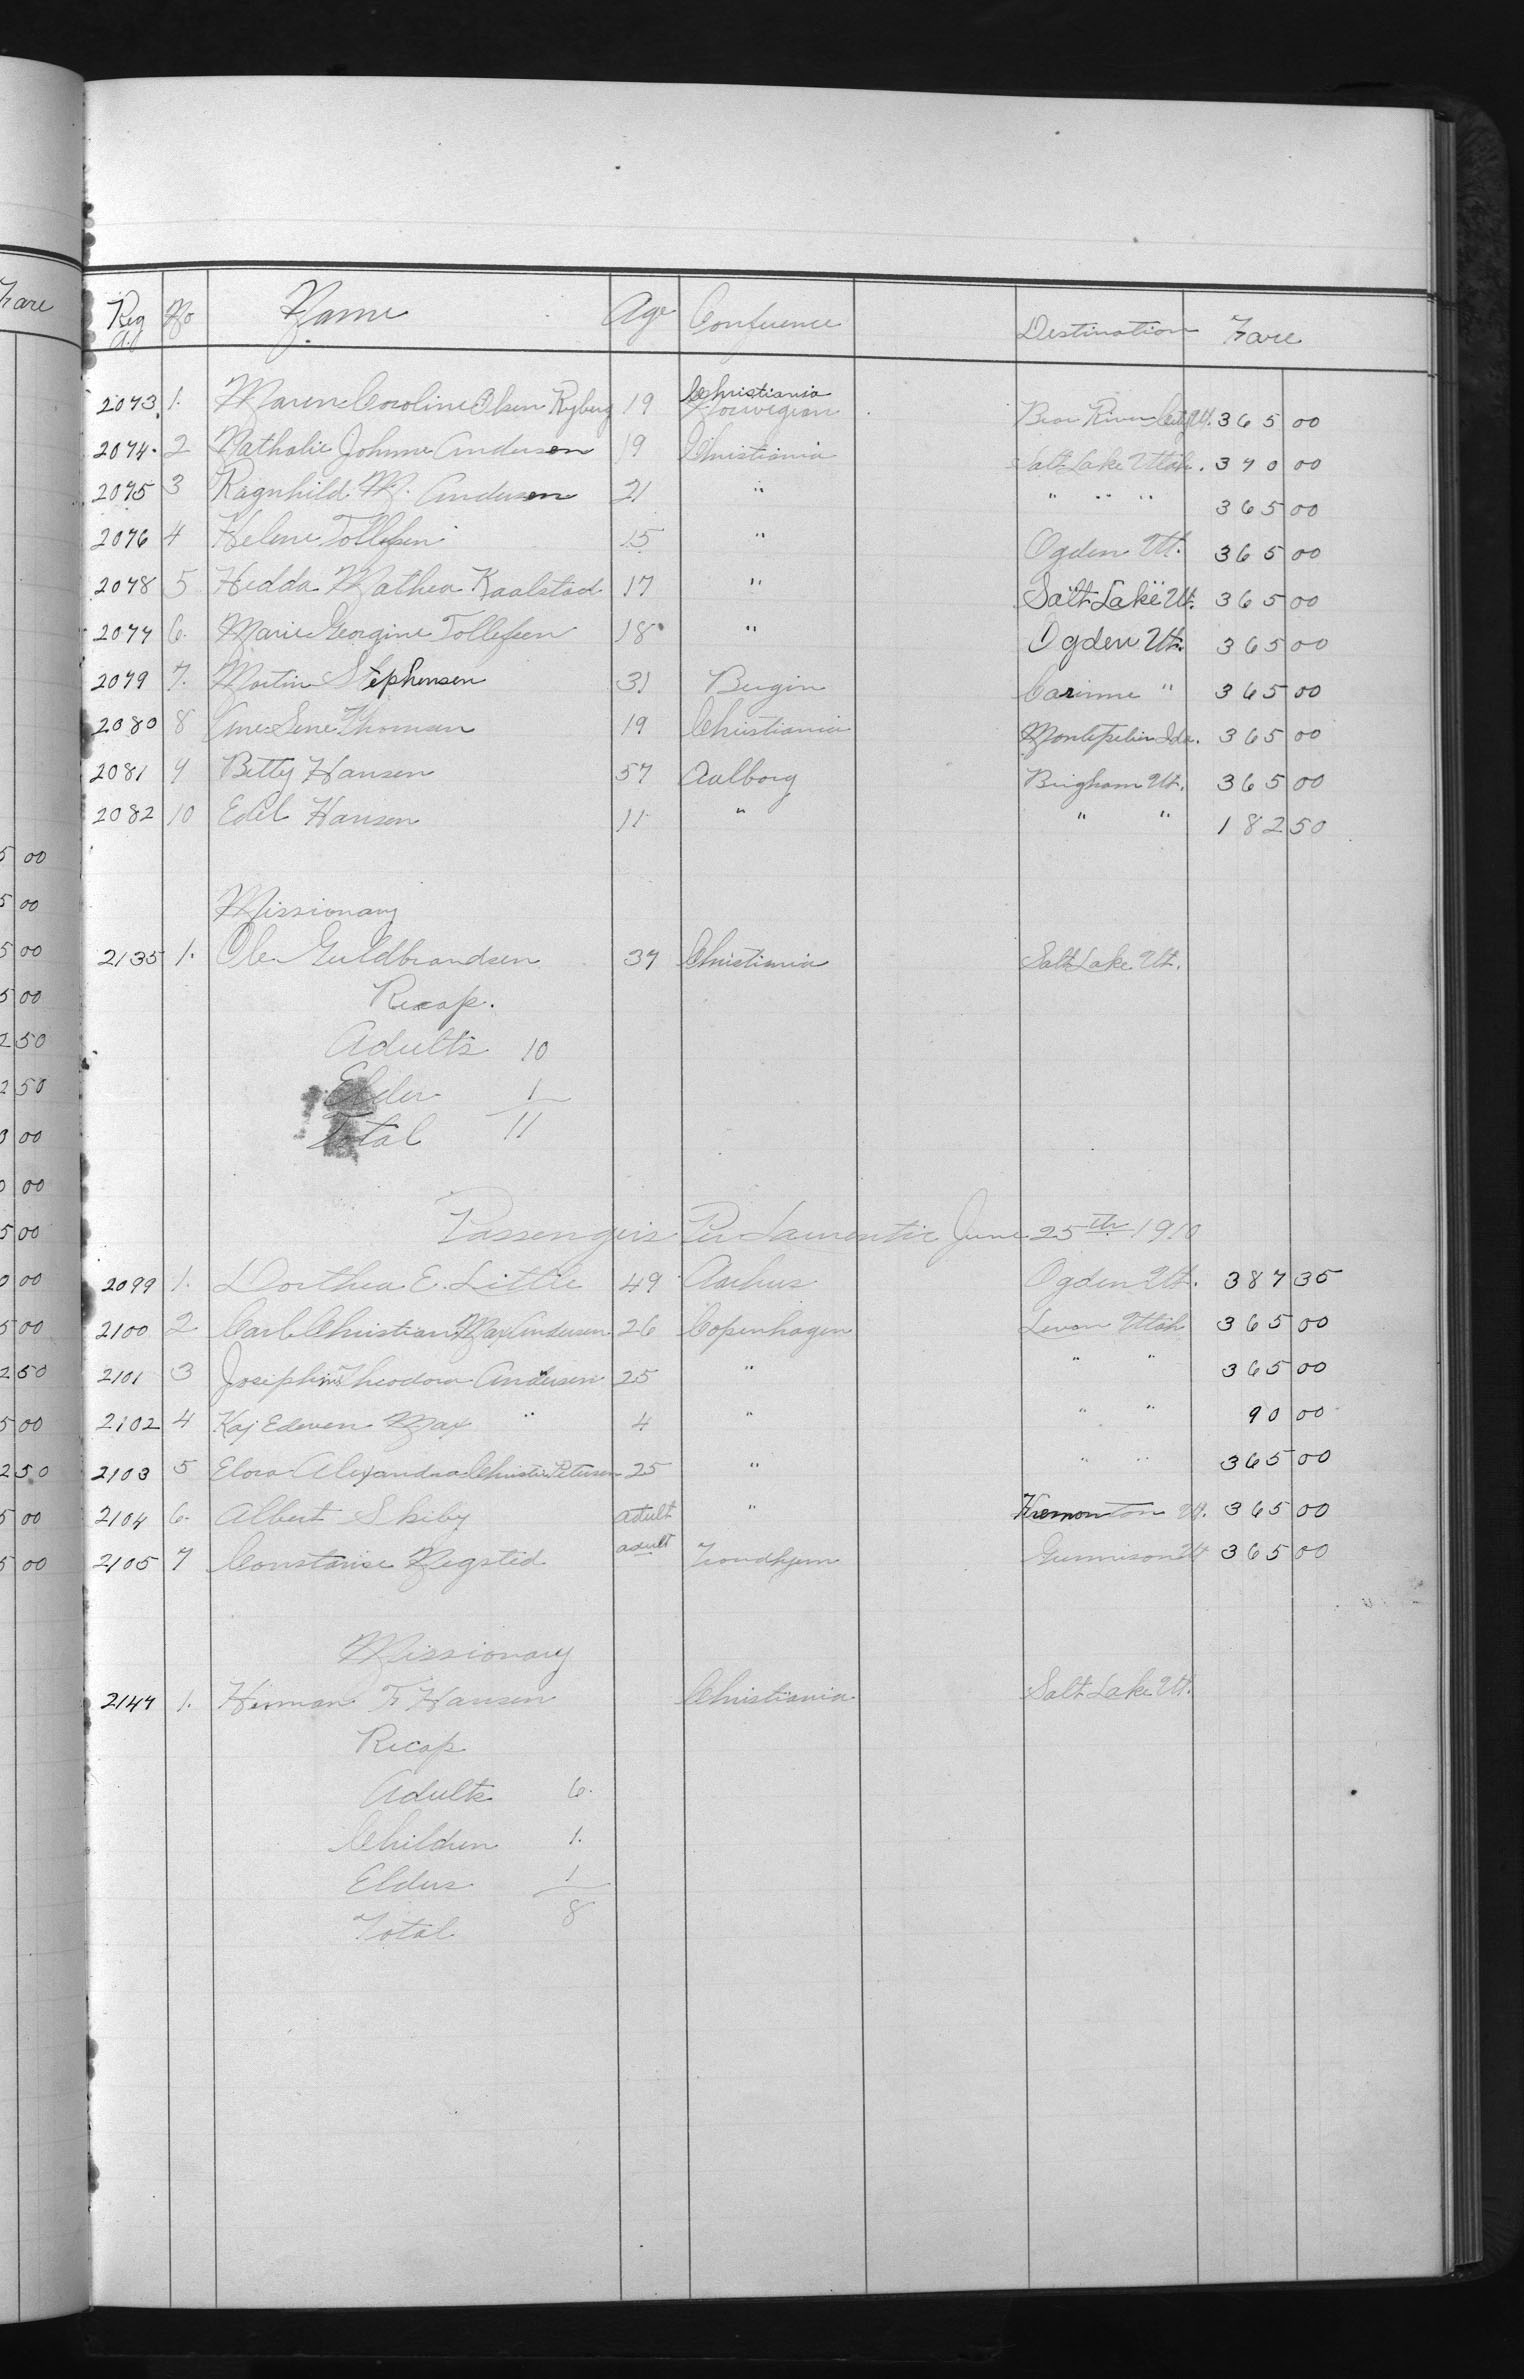 Fare
Reg No Name Age Conference Destination Fare
Christiania
2073 1. Maren Caroline Olsen Ryberg 19 Norwegian Bear River City Ut. 365 00
2074. 2 Nathalie Johnne Andersen 19 Christiania Salt Lake Uttah. 370 00
2075 3 Ragnhild M. Andersen 21 " " " " 365 00
2076 4 Helene Tollefsen 15 " Ogden Ut. 365 00
2078 5 Hedda Mathea Kaalstad 17 " Salt Lake Ut. 365 00
2077 6. Marie Georgine Tollefsen 18 " Ogden Ut. 365 00
2079 7. Martin Stephensen 31 Bergin Corinne " 365 00
2080 8 Ane Sene Thomsen 19 Christiania Montpelier Ida. 365 00
2081 9 Betty Hansen 57 Aalborg Brigham Ut. 365 00
2082 10 Edel Hansen 11 " " " 182 50
Missionary
2135 1. Ole Guldbrandsen 37 Christiania Salt Lake Ut.
Recap.
Adults 10
Elder 1
Total 11
Passengers Per Laurentic June 25th 1910
2099 1. Dorthea E. Little 49 Aarhus Ogden Ut. 387 35
2100 2 Carl Christian Max Andersen 26 Copenhagen Levan Uttah 365 00
2101 3 Josephine Theodora Andersen 25 " " " 365 00
2102 4 Kaj Edeven Max " 4 " " " 90 00
2103 5 Elora Alexandra Christie Petersen 25 " " " 365 00
2104 6. Albert Skiby adult " Tremonton Ut. 365 00
2105 7 Constanse Regstid adult Trondhjem Gunnison Ut 365 00
Missionary
2147 1. Herman F Hansen Christiania Salt Lake Ut.
Recap
Adults 6.
Children 1.
Elders 1
Total 8